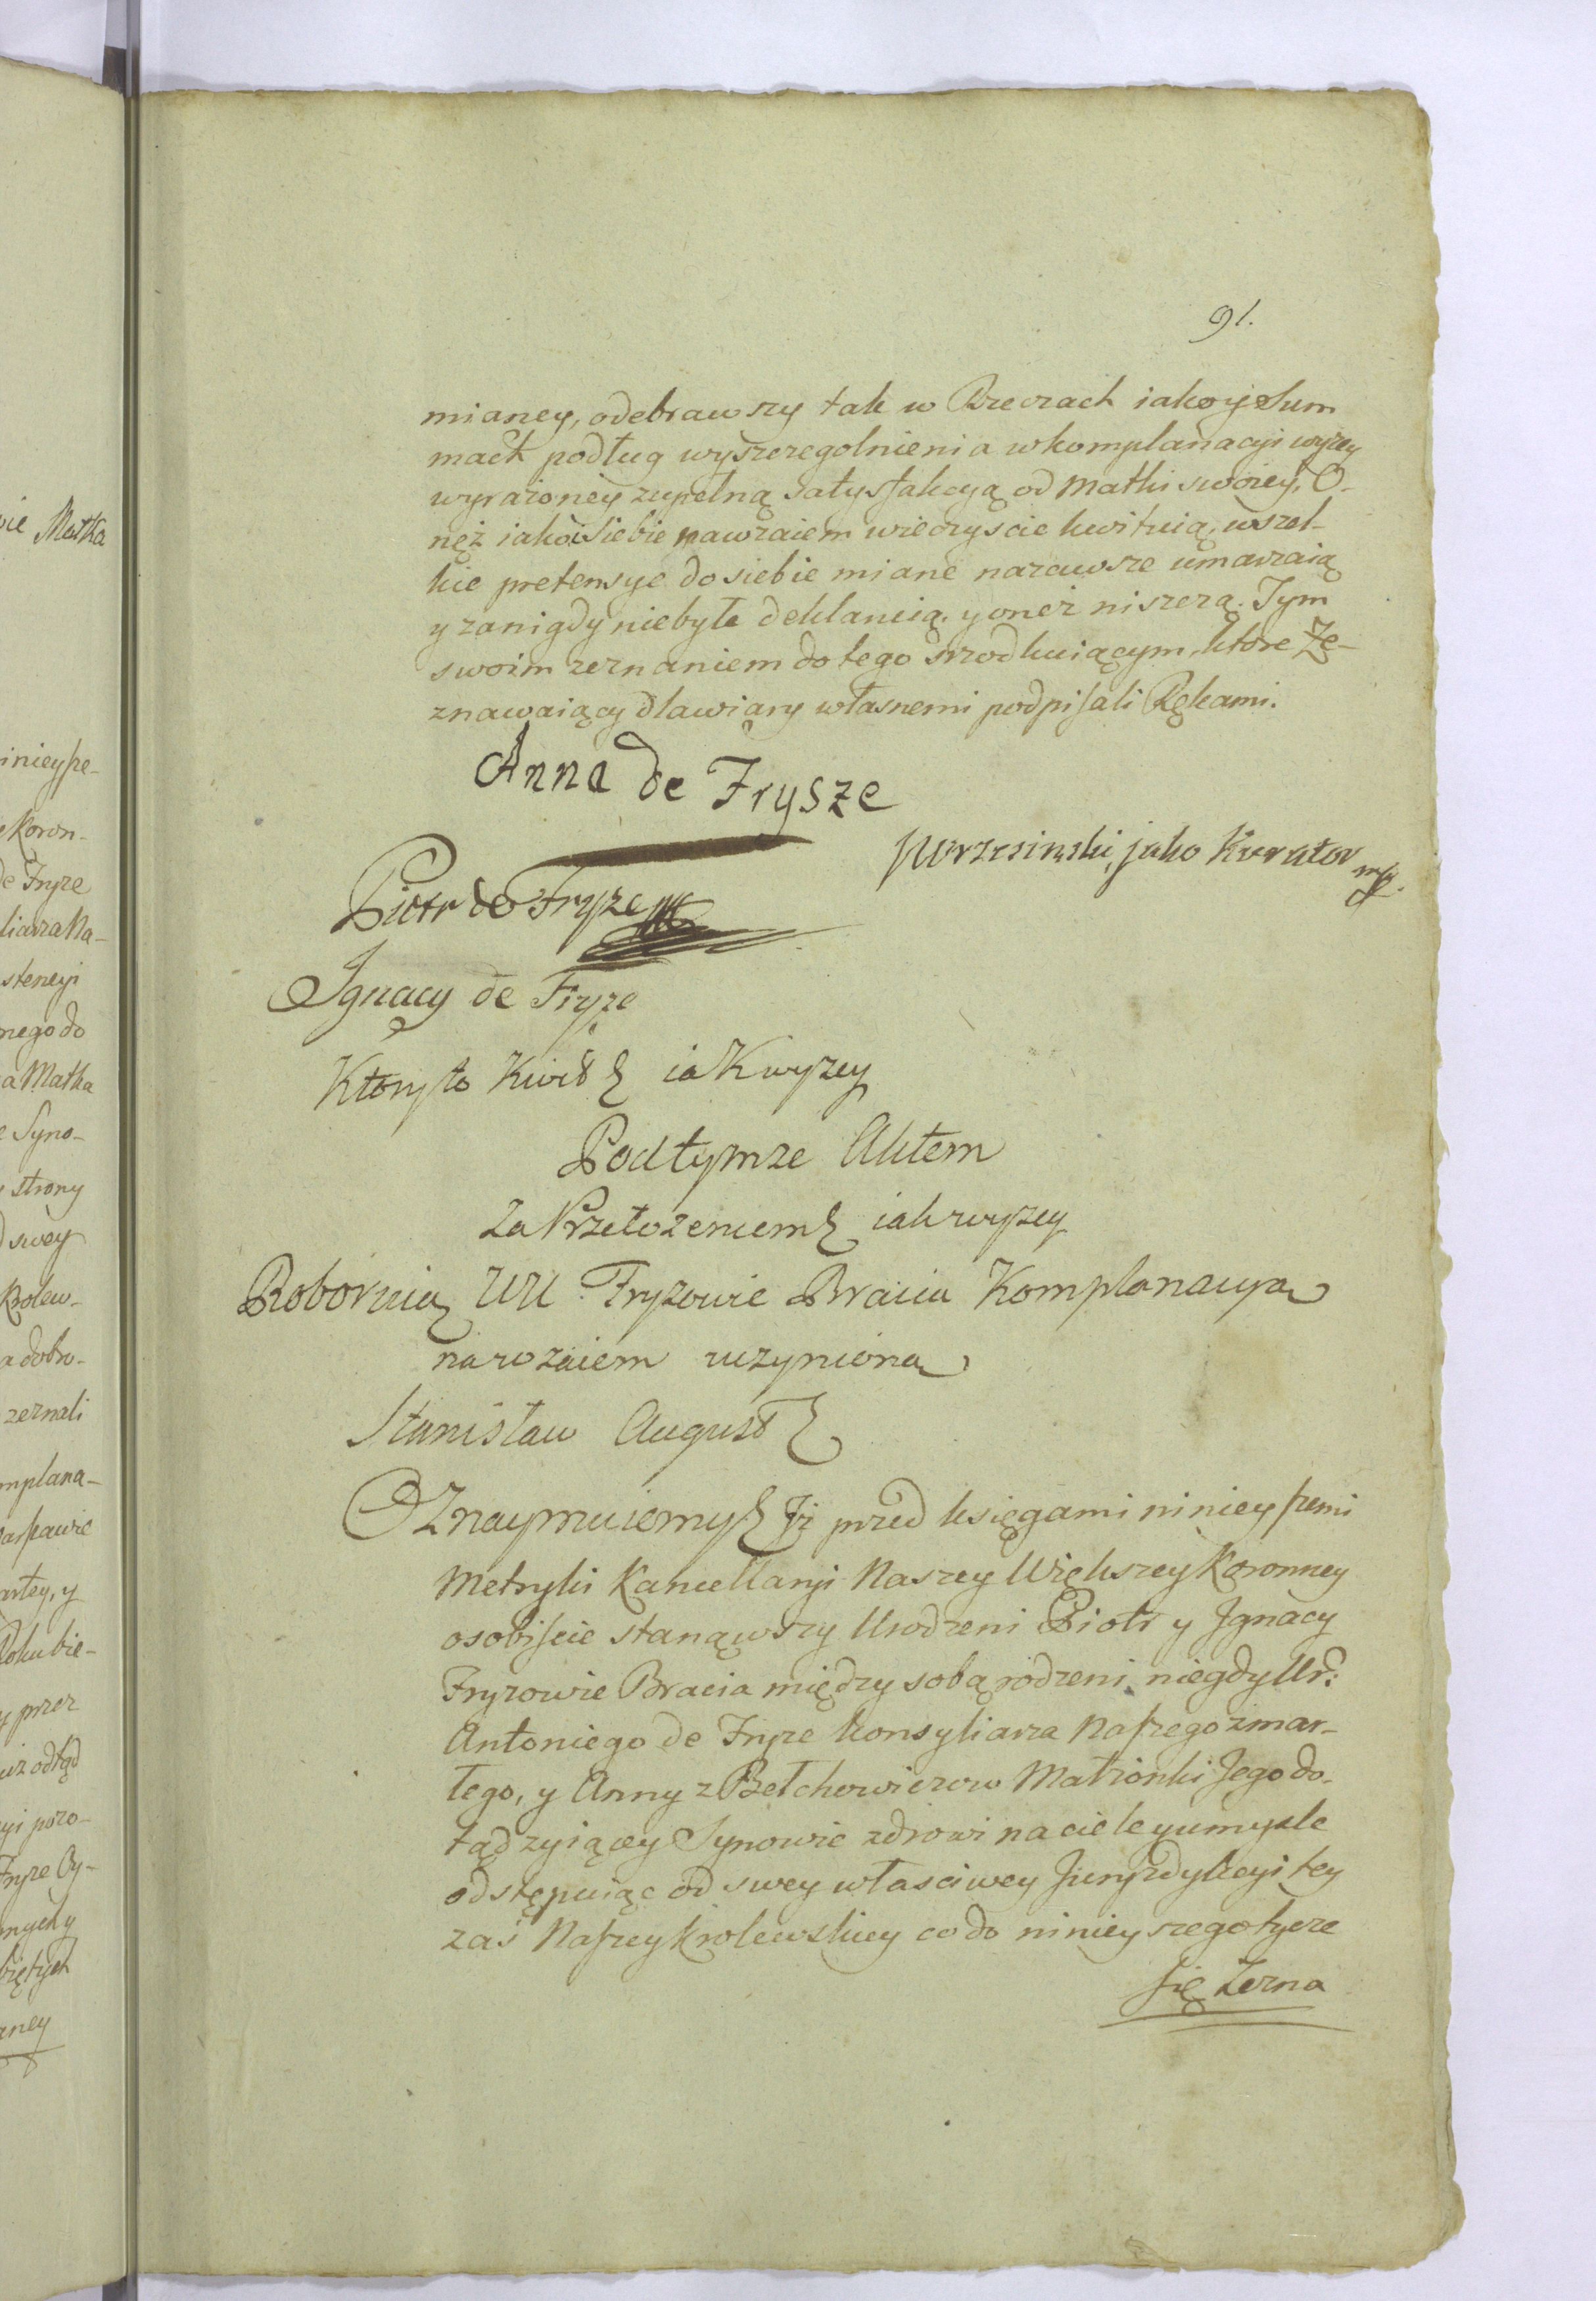 91.
mianey, odebrawszy tak w Rzeczach iako y Sum
mach podług wyszczegolnienia w komplanacyi wyżey
wyrażoney zupełną satysfakcyą od Matki swoiey, O-
nęż iako i siebie nawzaiem wieczyscie kwituią, wszel-
kie pretensye do siebie miane nazawsze umarzaią
y zanigdy niebyłe deklaruią, y oneż niszczą. Tym
swoim zeznaniem do tego srzodkuiącym, ktore Ze-
znawaiący dla wiary własnemi podpisali Rękami.
Anna de Frysze
Wrzesinski, jako Kurator mp.
Piotr de Fryze mp
Ignacy de Fryze
Ktorysto Kwit iak wyzey
Pod tymze Aktem
Za Przełozeniem iak wyzey
Roboruią UU Fryzowie Bracia Komplanacya
nawzaiem uczyniona
Stanisław August
Oznaymuiemy Iż przed księgami ninieyszemi
Metryki Kancellaryi Naszey Większey Koronney
osobiscie stanąwszy Urodzeni Piotr y Ignacy
Fryzowie Bracia między sobą rodzeni, niegdy Ur:
Antoniego de Fryze Konsyliarza Naszego zmar-
łego, y Anny z Bełchowiczow Małżonki Jego do-
tąd zyiącey Synowie zdrowi na ciele y umysle
odstępuiąc od swey własciwey Juryzdykcyi tey
zaś Naszey Krolewskiey co do ninieyszego tycze
się Zezna